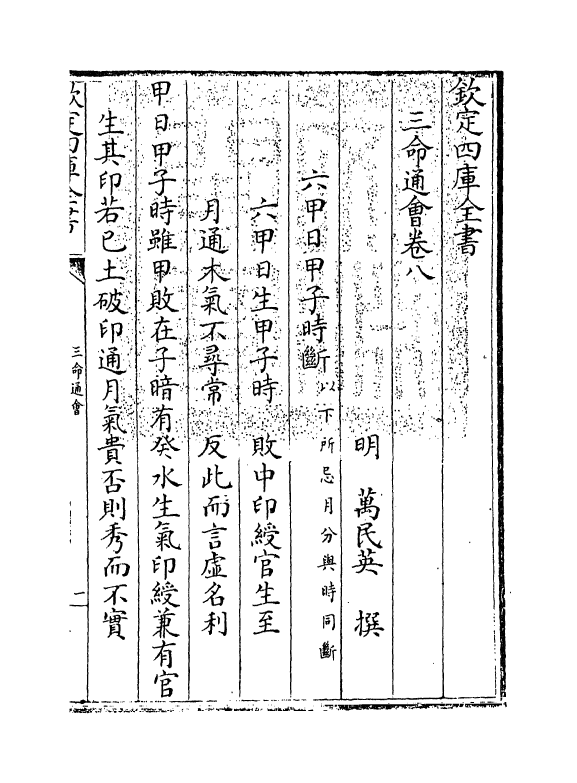 欽定四庫全書
三命通會卷八
明 萬民英 撰
六甲日甲子時斷以下所忌月分與時同斷
六甲日生甲子時 敗中印綬官生至
月通木氣不尋常 反此而言虛名利
甲日甲子時雖甲敗在子暗有癸水生氣印綬兼有官
生其印若已土破印通月氣貴否則秀而不實
三命通會
二